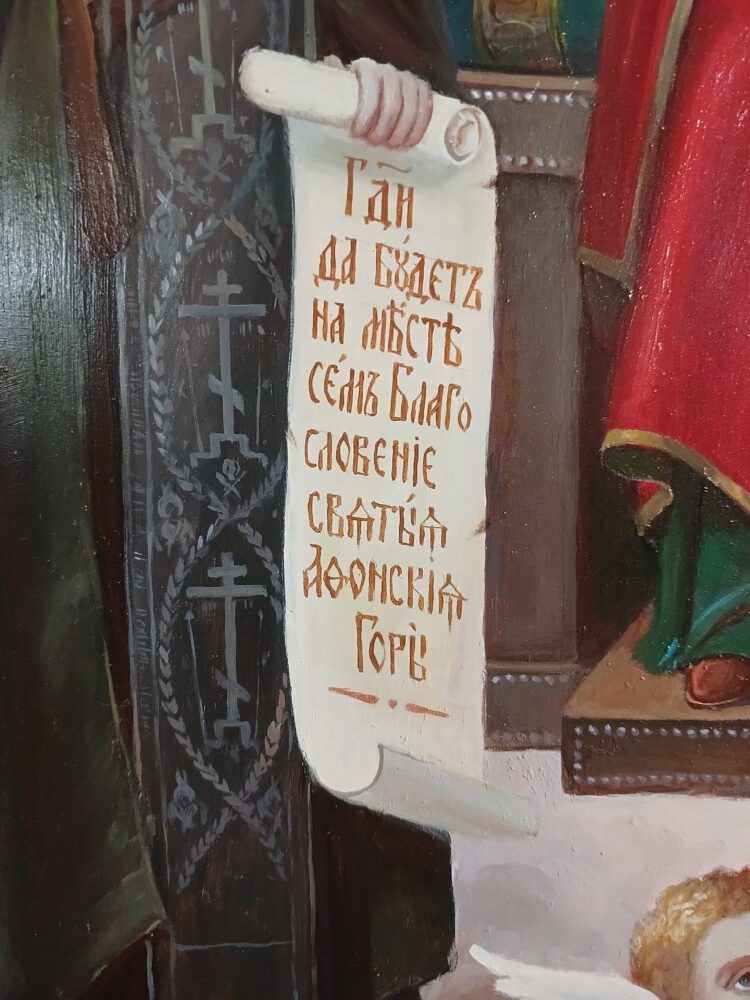 Гд҃и
да бꙋ́детъ
на мѣ́стѣ
се́мъ Благо
словеніе
свѧты́ѧ
Аѳонскіѧ
Горы̀